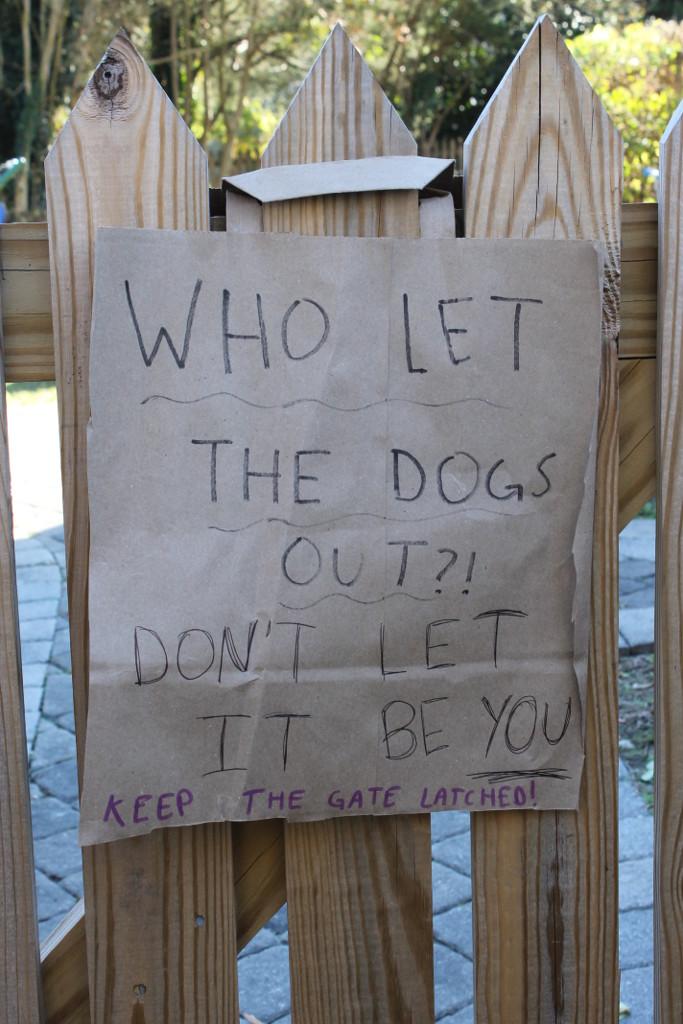 WHO LET
THE DOGS
OUT?!
DON'T LET
IT BE YOU
KEEP THE GATE LATCHED!